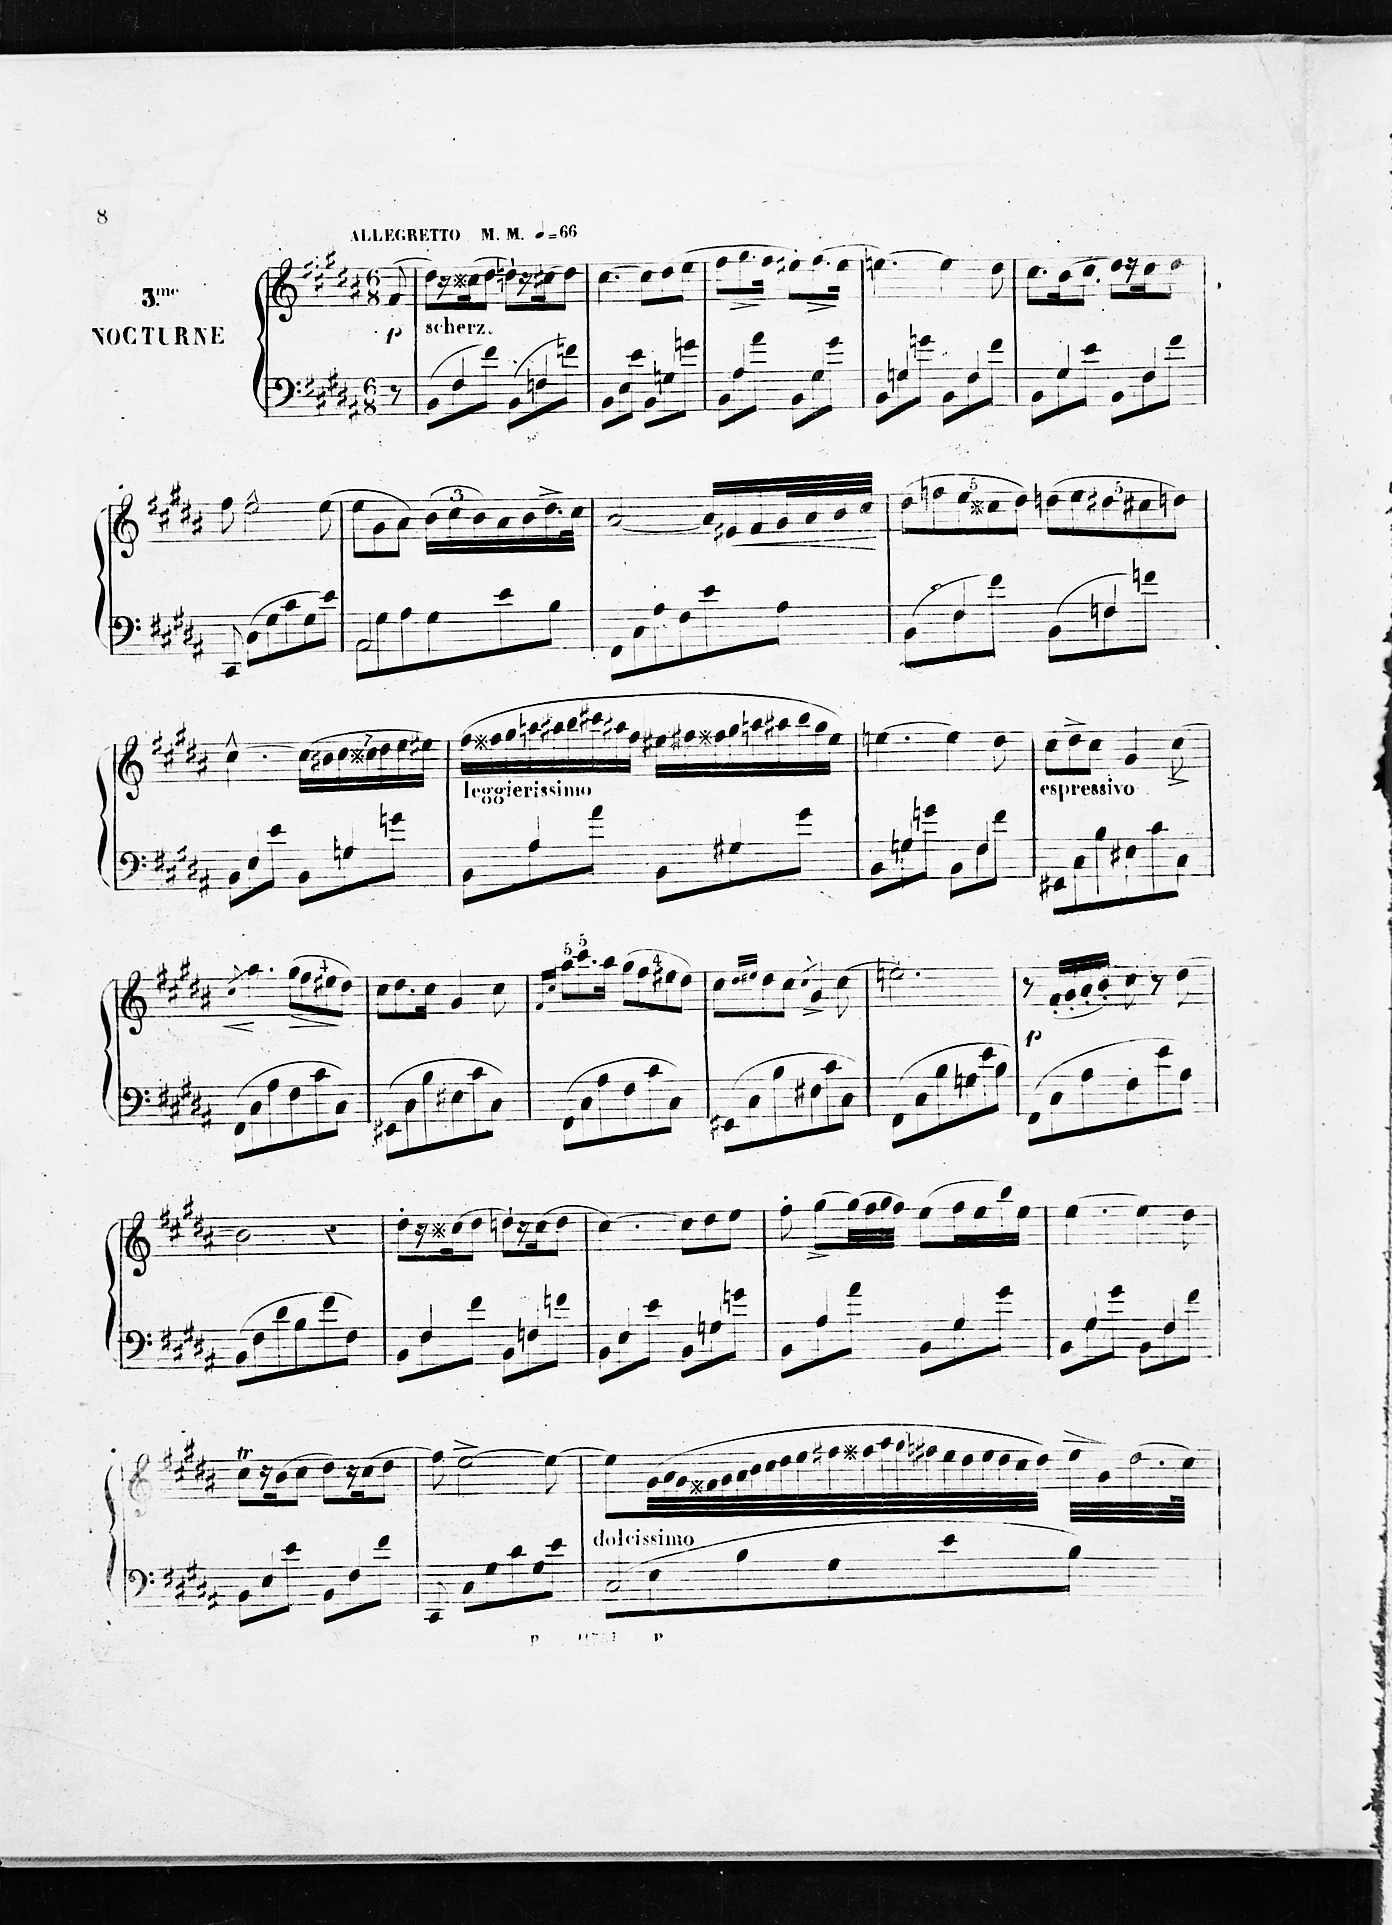 8
ALLEGRETTO M. M. ♩=66
3.me
NOCTURNE
6
8
p
scherz.
6
8
3
5
5
7
leggierissimo
espressivo
4
5
5
4
p
tr
dolcissimo
P
P